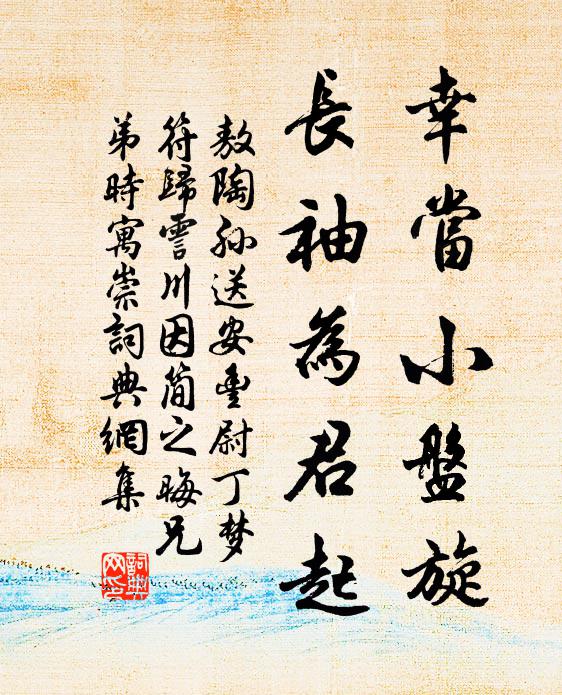 幸當小盤旋
長袖為君起
敖陶孫送安豐尉丁梦
符歸霅川因简之晦兄
弟時寓崇詞典網集
詞典